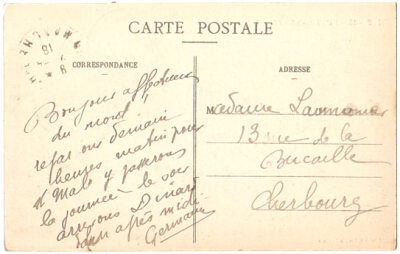 CARTE POSTALE
CORRESPONDANCE
ADRESSE
Bonjour affectueux
du mont!
demain
heures matin pour
St Malo y passerons
la journée le soir
arrivons Dinard
après midi
Germaine
Madame
13 rue de la
Bucaille
Cherbourg